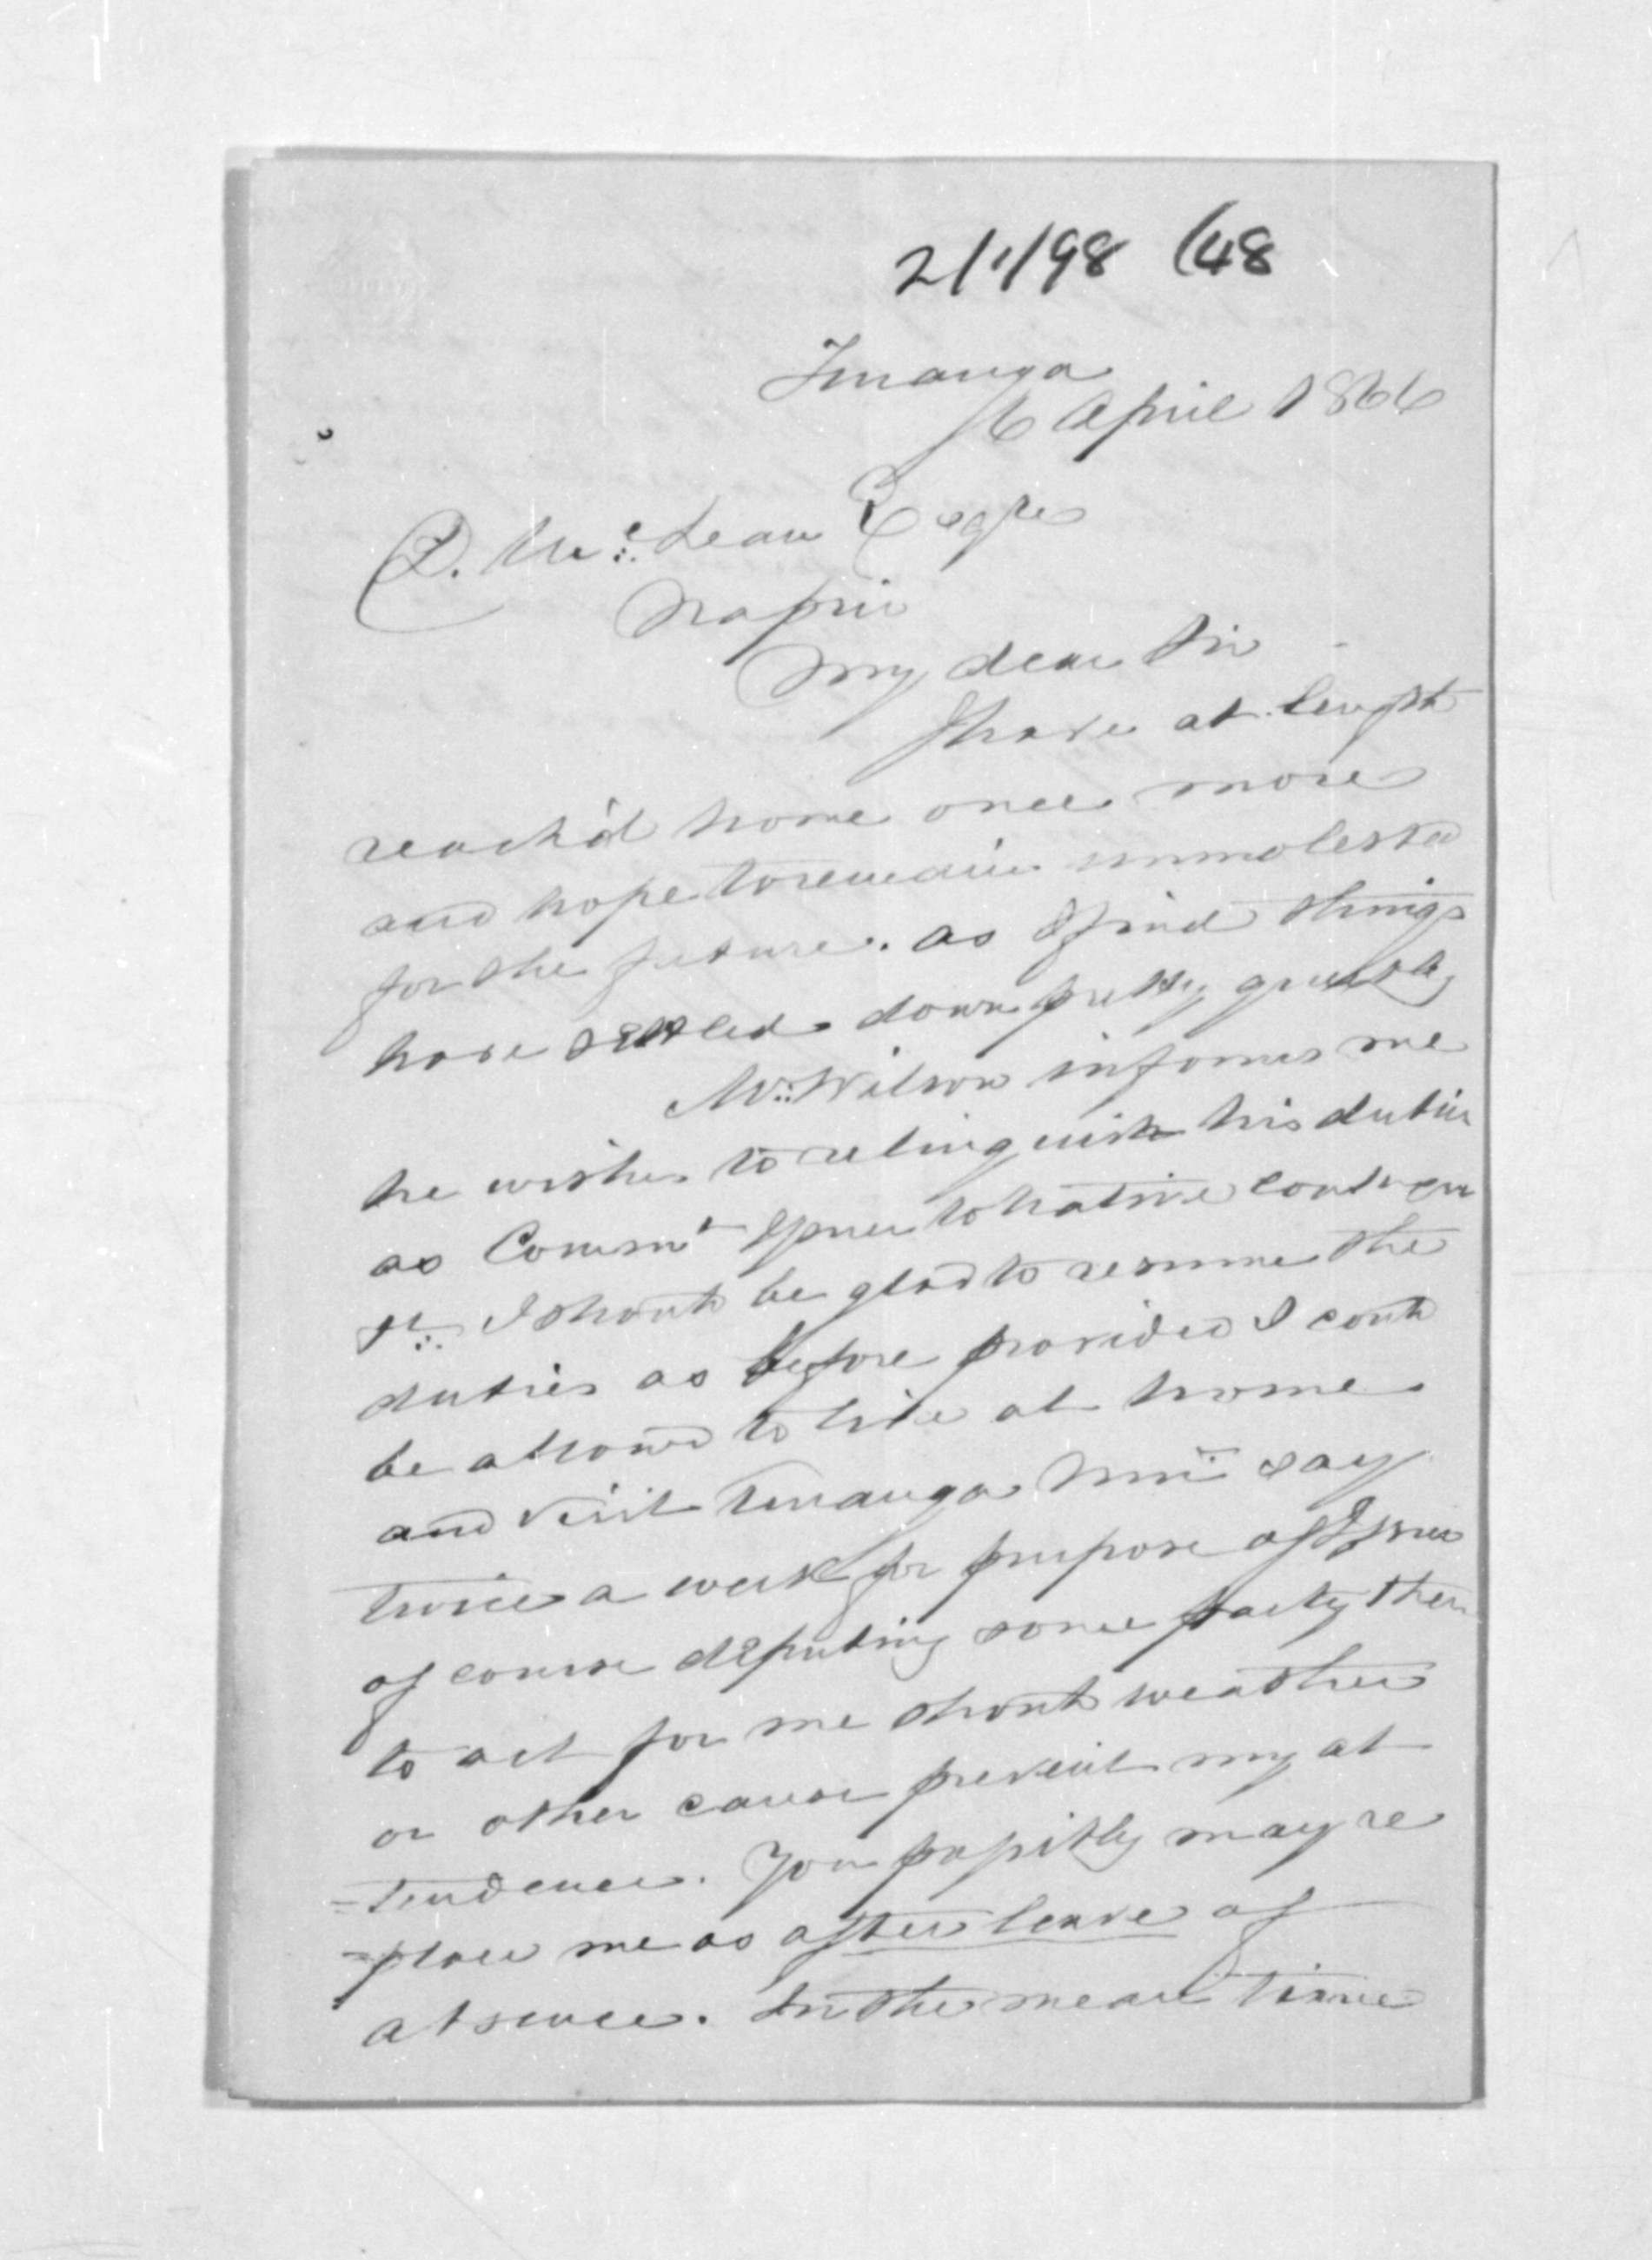 2/1/98 (48
Turanga
16 April 1866
D. McLean Esqre
Napier
My dear Sir
I have at length
reach'd home once more
and hope to remain unmolested
for the future. as I find things
have settled down pretty quietly
Mr: Wilson informs me
he wishes to relinquish his duties
as Commt Issuer to Native Contingen
I should be glad to resume the
duties as before provided I could
be allowed to live at home
and visit Turanga nui say
twice a week for purpose of Issue
of course deputing some party then
to act for me should weather
or other cause prevent my at
=tendence. You possibly may re
=place me as after leave of
absence. In the mean time